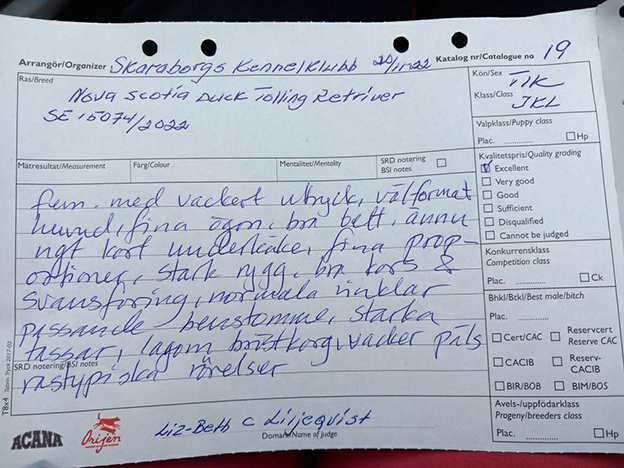 Arrangör/Organizer Skaraborgs Kennelklubb 20/11-22 Katalog nr/Catalogue no 19
Ras/Breed
Nova Scotia Duck Tolling Retriver
SE 15074/2022
Kön/Sex TIK
Klass/Class JKL
Valpklass/Puppy class
Plac. Hp
Mätresultat/Measurement Färg/Colour Mentalitet/Mentality SRD notering BSI notes
Kvalitetspris/Quality grading
Excellent
Very good
Good
Sufficient
Disqualified
Cannot be judged
fem. med vackert uttryck, välformat
huvud, fina ögon, bra bett, ännu
ngt kort underkäke, fina prop-
ortioner, stark rygg, bra kors &
svansföring, normala vinklar
passande benstomme, starka
tassar, lagom bröstkorg, vacker päls
rastypiska rörelser
SRD notering/BSI notes
Konkurrensklass
Competition class
Plac. Ck
Bhkl/Btkl/Best male/bitch
Plac.
Cert/CAC Reservcert Reserve CAC
CACIB Reserv-CACIB
BIR/BOB BIM/BOS
Avels-/uppfödarklass
Progeny/breeders class
Plac. Hp
T8x4 Tabrin Tryck 2017-02
ACANA Orijen
Liz-Beth C Liljeqvist
Domare/Name of judge